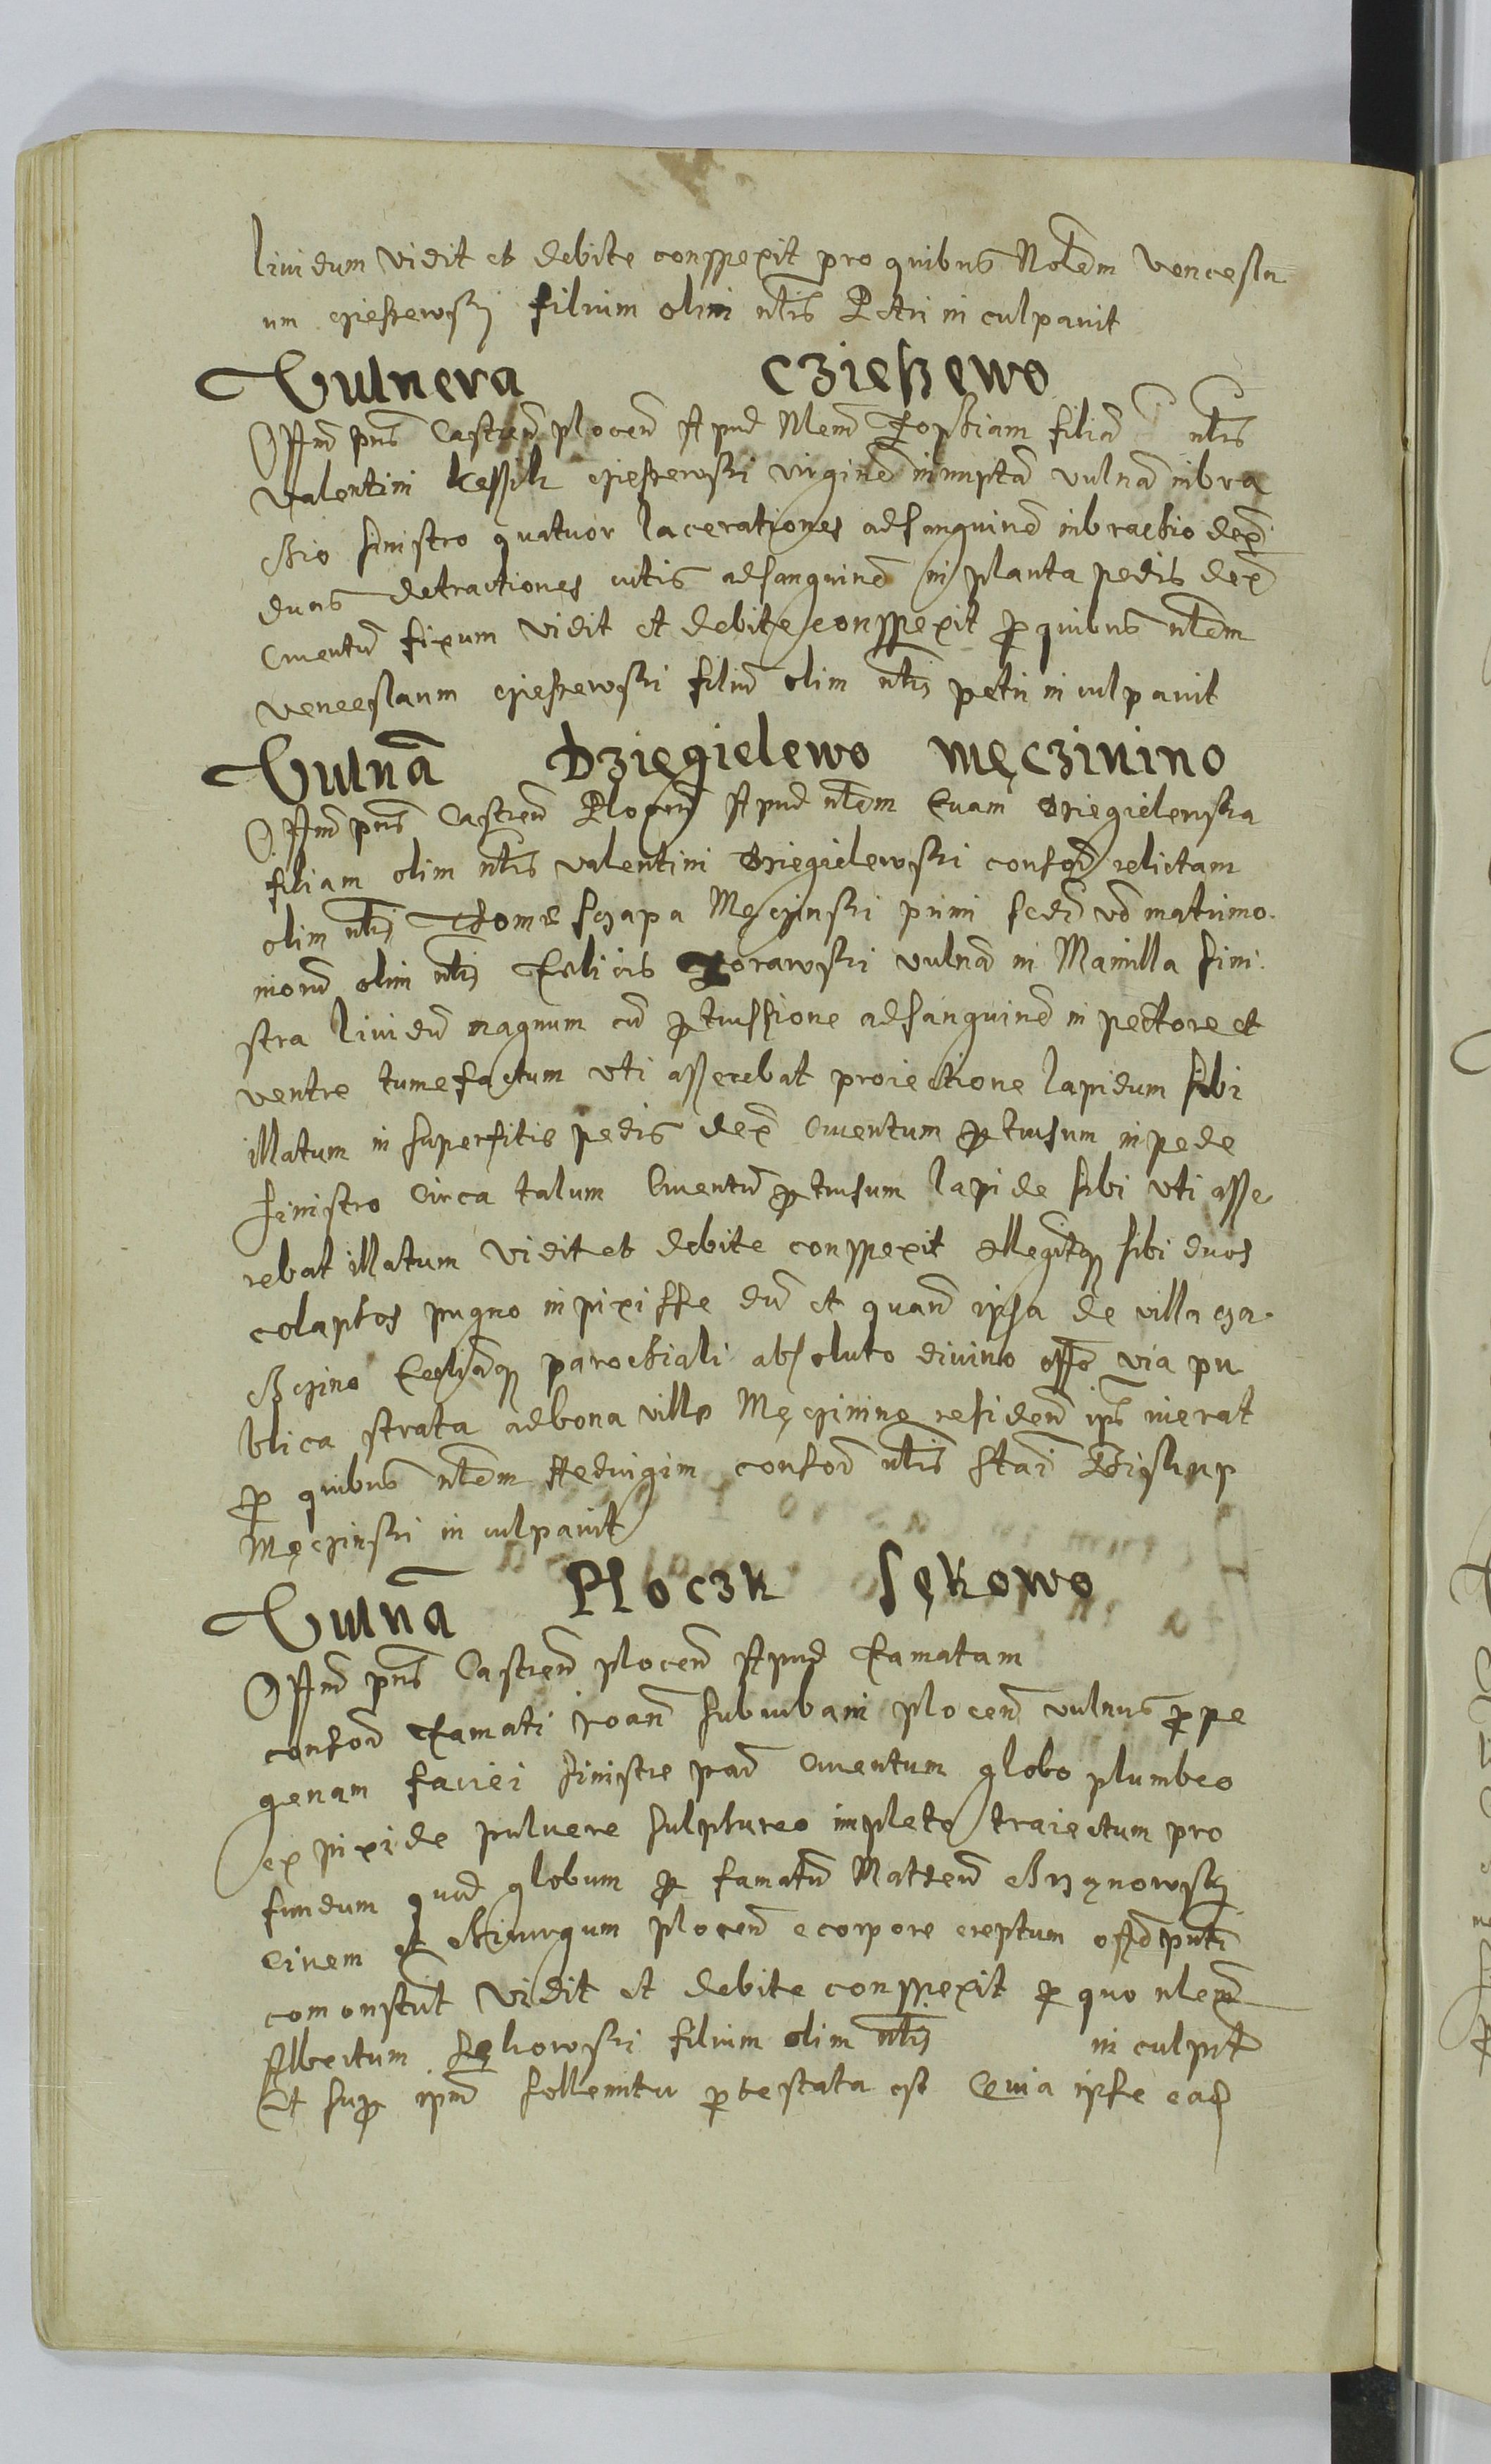 lividum vidit et debite conspexit pro quibus Nobilem Vencesla
um czieszewsky filium olim nobilis Petri in culpavit
Vulnera Czieszewo
Offm pns Castren plocen Apud Nlem Zophiam filiā nlis
Valentini czieszewski virginē innuptā vulnā in bra
chio sinistro quatuor lacerationes ad sanguinē in brachio dex
duas detractiones cutis ad sanguinē in planta pedis dex
Cruentū fixum vidit et debite conspexit pro quibus nlem
venceslaum czieszewski filiū olim nlis petri in culpavit
Vulnā Dziegielewo Męczinino
Offm pns Castren Plocen Apud nlem Evam dziegielewska
filiam olim nlis valentini dziegielewski consor relictam
olim nlis Thome sczapa Męczinski primi secdi vo matrimo
niorū olim nlis Felicis Zorawski vulnā in Mamilla sini
stra lividū magnum cū protrussione ad sanguinē in pectore et
ventre tumefactum uti asserebat proiectione lapidum sibi
illatum in superficie pedis dex Cruentum protrusum in pede
sinistro Circa talum Cruentū protrusum lapide sibi uti asse
rebat illatum vidit et debite conspexit sibi duos
colaphos pugno inpixisse dū et quando ipsa de villa
Ecclīaq parochiali absoluto divino offo via pu
blica strata ad bona ville Męczinino residen ierat
pro quibus nlem Hedvigim consor nlis Stai Biskup
Męczinski in culpavit
Vulnā Ploczk Sękowo
Offm pns Castren plocen Apud Famatam
consor Famati Joan suburbani plocen vulnus prope
genam faciei sinistre par Cruentum globo plumbeo
ex pixide pulvere sulphureo impleto traiectum pro
fundum quod globum per famatū Matheū
Civem et Chirurgum plocen e corpore ereptum
comonstrat vidit et debite conspexit pro quo nlem
Albertum Sękowski filium olim nlis in culpat
Et super ipm sollenniter protestata est Quia ipse